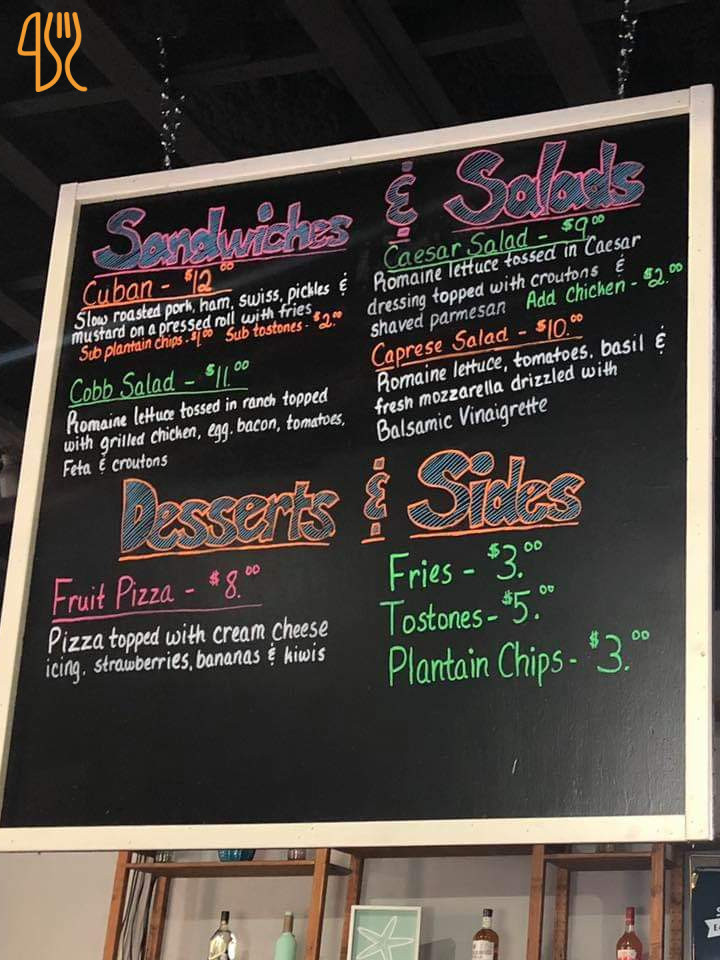 Sandwiches & Salads
Cuban - $12.00
Slow roasted pork, ham, swiss, pickles &
mustard on a pressed roll with fries
Sub plantain chips - $1.00 Sub tostones - $2.00
Cobb Salad - $11.00
Romaine lettuce tossed in ranch topped
with grilled chicken, egg, bacon, tomatoes,
Feta & croutons
Caesar Salad - $9.00
Romaine lettuce tossed in Caesar
dressing topped with croutons &
shaved parmesan Add Chicken - $2.00
Caprese Salad - $10.00
Romaine lettuce, tomatoes, basil &
fresh mozzarella drizzled with
Balsamic Vinaigrette
Desserts & Sides
Fruit Pizza - $8.00
Pizza topped with cream cheese
icing, strawberries, bananas & kiwis
Fries - $3.00
Tostones - $5.00
Plantain Chips - $3.00